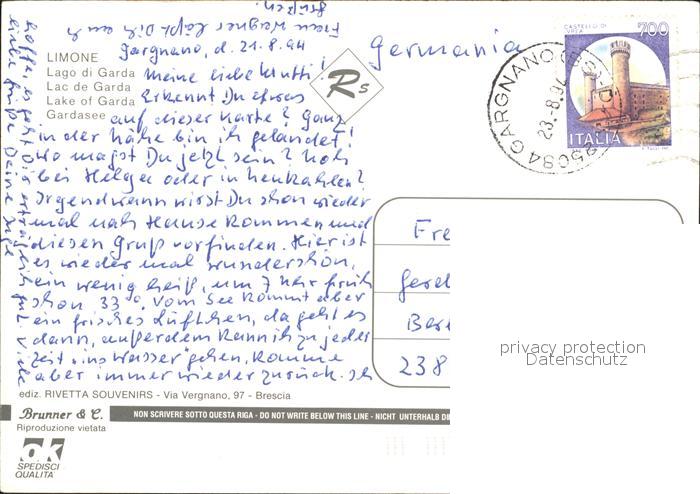 LIMONE
Lago di Garda
Lac de Garda
Lake of Garda
Gardasee
Gargnano, d. 21.8.94
Meine liebe Mutti!
Erkennt Du etwas
auf dieser Karte? Ganz
in der Nähe bin ich gelandet!
Wo magst Du jetzt sein? Noch
bei Helga oder in
Irgendwann wirst Du schon wieder
mal nach Hause kommen und
diesen Gruß vorfinden. Hier ist
es wieder mal wunderschön,
ein wenig heiß, um 7 Uhr früh
schon 33°. Vom See kommt aber
ein frisches Lüftchen, da geht es
dann, außerdem kann ich zu jeder
Zeit ins Wasser gehen, komme
aber immer wieder zurück. Ich
hoffe, es geht Dir erträglich gut. Viele
liebe Grüße Deine Inge
Frau Wagner läßt Dich auch
grüßen!
Rs
Germania
CASTELLO DI
IVREA
700
ITALIA
25084 GARGNANO (BS)
23.8.94
Fre
Gerd
Ber
238
privacy protection
Datenschutz
ediz. RIVETTA SOUVENIRS - Via Vergnano, 97 - Brescia
Brunner & C.
NON SCRIVERE SOTTO QUESTA RIGA - DO NOT WRITE BELOW THIS LINE - NICHT UNTERHALB DI
Riproduzione vietata
ok
SPEDISCI
QUALITÀ